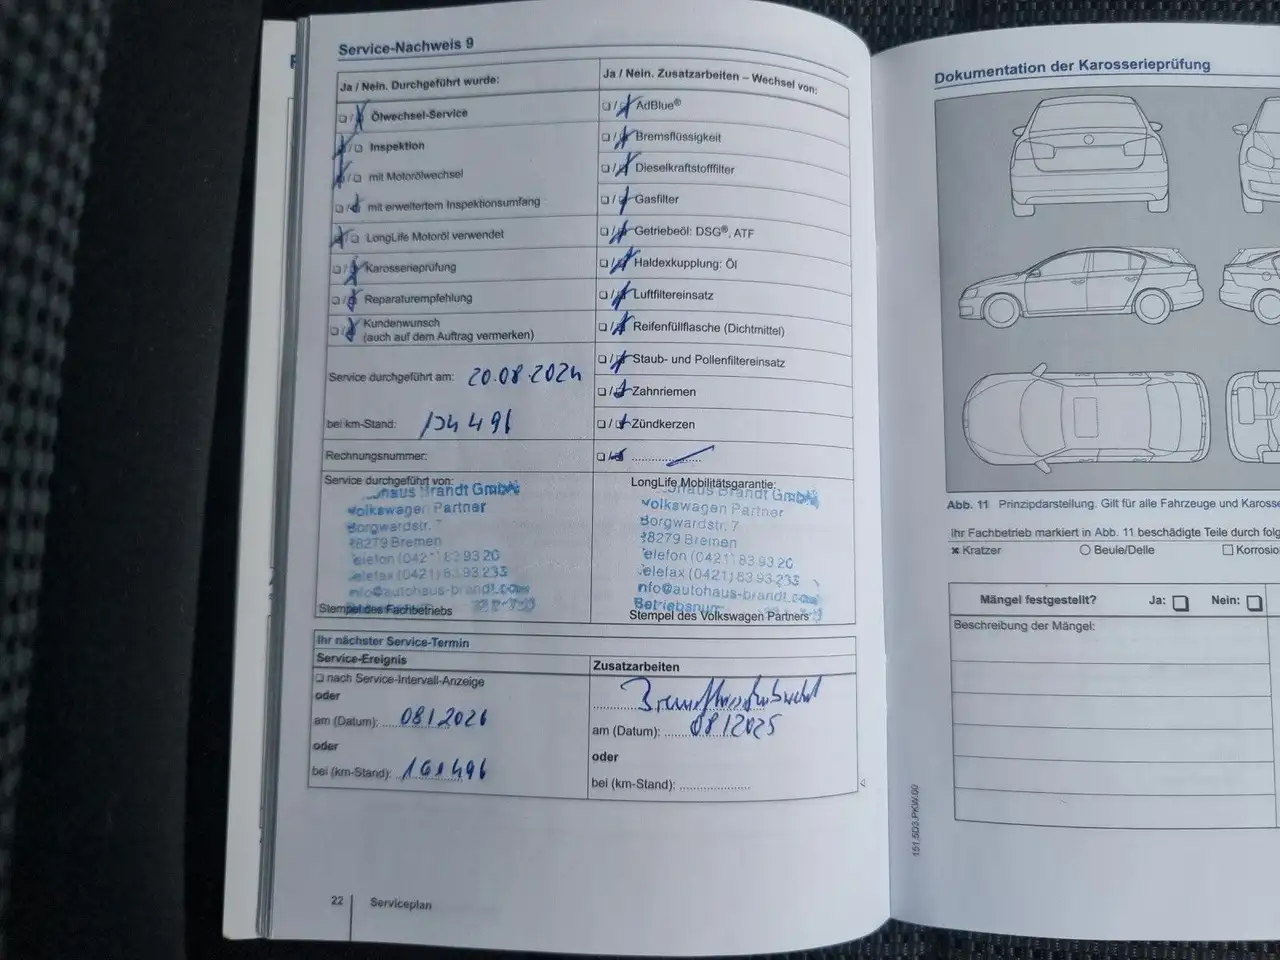 Service-Nachweis 9
Ja / Nein. Durchgeführt wurde:
Ölwechsel-Service
Inspektion
mit Motorölwechsel
mit erweitertem Inspektionsumfang
LongLife Motoröl verwendet
Karosserieprüfung
Reparaturempfehlung
Kundenwunsch
(auch auf dem Auftrag vermerken)
Service durchgeführt am: 20.08.2024
bei km-Stand: 134 496
Rechnungsnummer:
Ja / Nein. Zusatzarbeiten – Wechsel von:
AdBlue®
Bremsflüssigkeit
Dieselkraftstofffilter
Gasfilter
Getriebeöl: DSG®, ATF
Haldexkupplung: Öl
Luftfiltereinsatz
Reifenfüllflasche (Dichtmittel)
Staub- und Pollenfiltereinsatz
Zahnriemen
Zündkerzen
Service durchgeführt von:
haus Brandt GmbH
Volkswagen Partner
Borgwardstr. 7
28279 Bremen
Telefon (0421) 83 93 20
Telefax (0421) 83 93 233
info@autohaus-brandt.com
Stempel des Fachbetriebs
LongLife Mobilitätsgarantie:
haus Brandt GmbH
Volkswagen Partner
Borgwardstr. 7
28279 Bremen
Telefon (0421) 83 93 20
Telefax (0421) 83 93-233
info@autohaus-brandt.com
Betriebsnum
Stempel des Volkswagen Partners
Ihr nächster Service-Termin
Service-Ereignis
nach Service-Intervall-Anzeige
oder
am (Datum): 08/2026
oder
bei (km-Stand):
Zusatzarbeiten
am (Datum): 08/2025
oder
bei (km-Stand):
22 Serviceplan
Dokumentation der Karosserieprüfung
Abb. 11 Prinzipdarstellung. Gilt für alle Fahrzeuge und Karosse
Ihr Fachbetrieb markiert in Abb. 11 beschädigte Teile durch folg
Kratzer Beule/Delle Korrosio
Mängel festgestellt? Ja: Nein:
Beschreibung der Mängel:
151.5D3.PKW.00